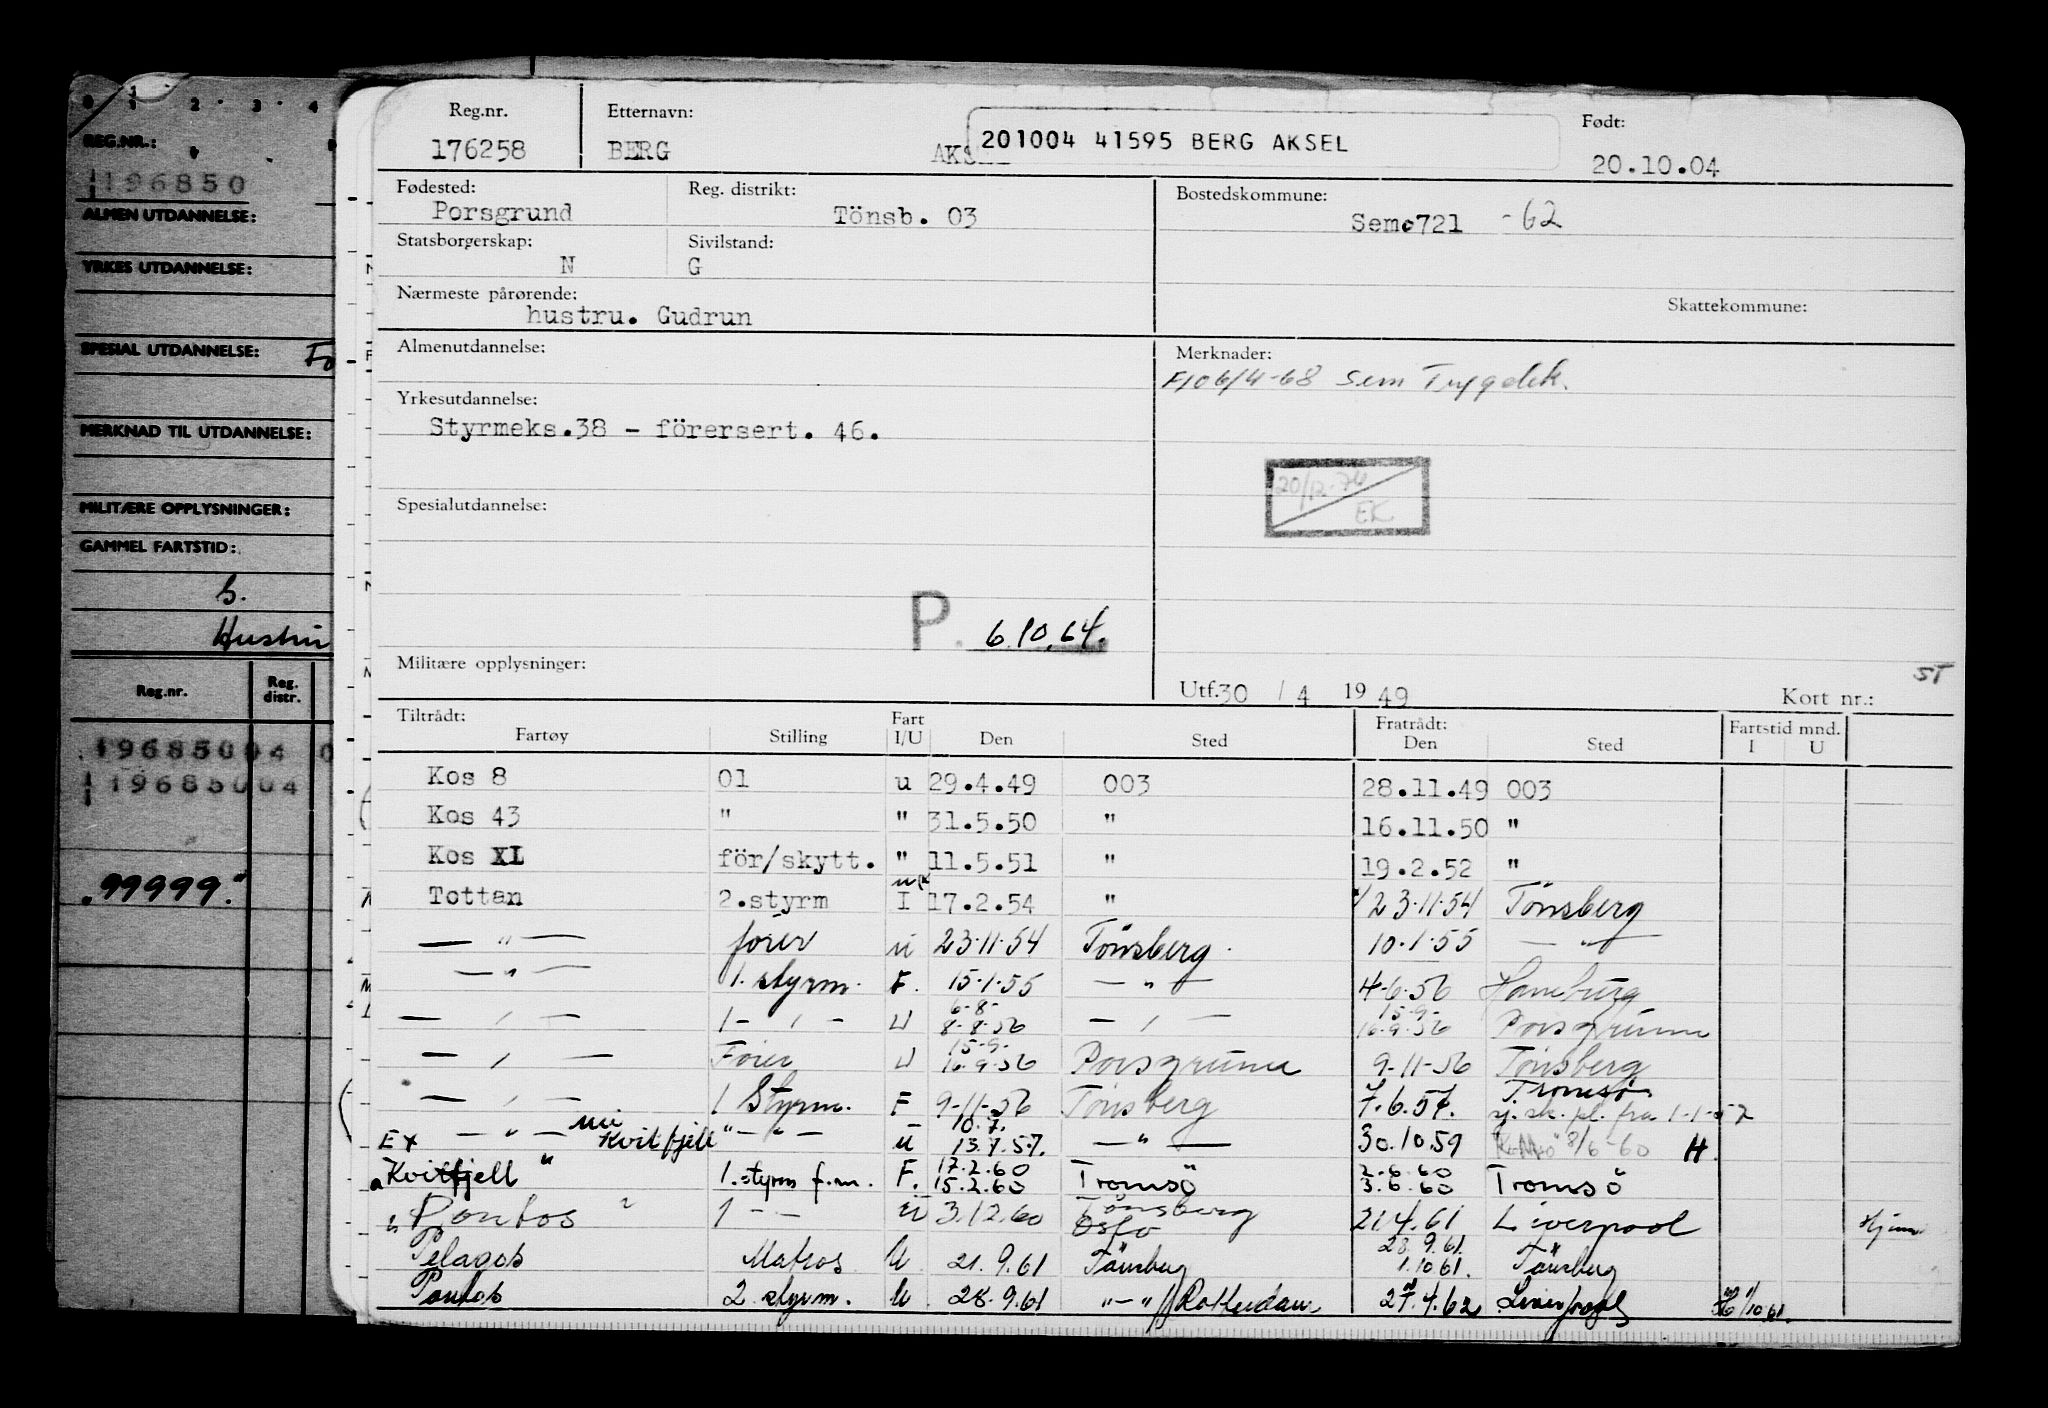 0 1 2 3 4
REG.NR.:
196850
ALMEN UTDANNELSE:
YRKES UTDANNELSE:
SPESIAL UTDANNELSE: Fo
MERKNAD TIL UTDANNELSE:
MILITÆRE OPPLYSNINGER:
GAMMEL FARTSTID:
S.
Hustru
Reg.nr. Reg. distr.
19685004 0
19685004
.99999."
Reg.nr. Etternavn: Født:
176258 BERG AKS 201004 41595 BERG AKSEL 20.10.04
Fødested: Reg. distrikt: Bostedskommune:
Porsgrund Tönsb. 03 Semo721 -62
Statsborgerskap: Sivilstand:
N G
Nærmeste pårørende: Skattekommune:
hustru. Gudrun
Almenutdannelse: Merknader:
F106/4-68 Sem Trygdek.
Yrkesutdannelse:
Styrmeks.38 - förersert. 46.
20/12-74
EK
Spesialutdannelse:
P. 6.10.64.
Militære opplysninger:
ST
Utf.30 / 4 19 49 Kort nr.:
Tiltrådt: Fart Fratrådt: Fartstid mnd.
Fartøy Stilling I/U Den Sted Den Sted I U
Kos 8 01 u 29.4.49 003 28.11.49 003
Kos 43 " " 31.5.50 " 16.11.50 "
Kos XL för/skytt. " 11.5.51 " 19.2.52 "
Tottan 2.styrm I 17.2.54 " 23.11.54 Tönsberg
— " — förer u 23.11.54 Tönsberg. 10.1.55 — " —
— " — 1. styrm. F. 15.1.55 — " — 4-6-56 Hamburg
6-8- 15-9-
— , — 1 - , - U 8-8-56 — , — 16-9-56 Porsgrunn
15-9-
— , — Förer U 16-9-56 Porsgrunn 9-11-56 Tönsberg
Tromsö
— , — 1 Styrm. F 9-11-56 Tönsberg 7.6.57. sj. sk. pl. fra 1-1-57
10.7.
Ex — " — nu Kvitfjell " — " — u 13.7.57. — " — 30.10.59 8/6-60 H.
17.2.60 2.6.60
Kvitfjell " 1. styrm f.m. F. 15.2.60 Tromsö 3.6.60 Tromsö
Tönsberg
" Pontos " 1 - - U 3.12.60 Oslo 21.4.61 Liverpool
28.9.61.
Pelagos Matros U 21.9.61 Tönsberg 1.10 61. Tönsberg
Pontos 2 styrm. U 28.9.61 " — " // Rotterdam 27.4.62 Liverpool 1/10 61.